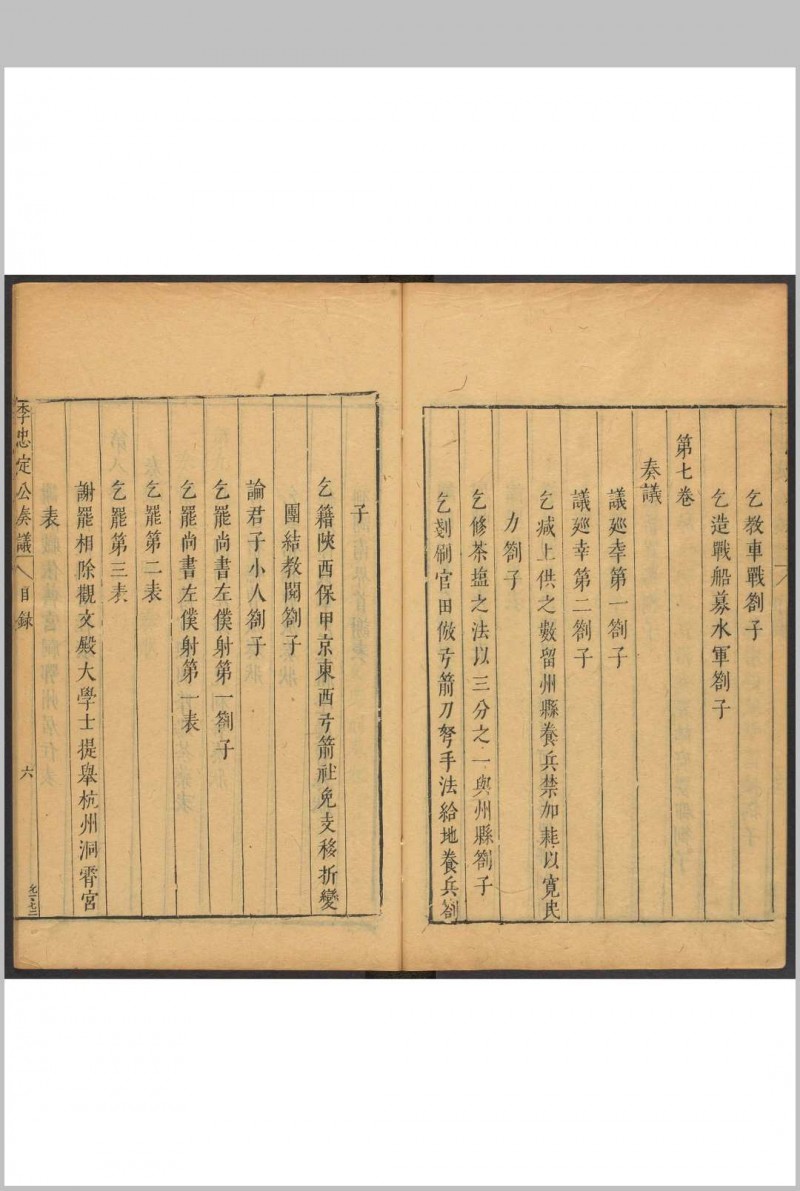 乞教車戰劄子
乞造戰船募水軍劄子
第七卷
奏議
議廵幸第一劄子
議廵幸第二劄子
乞减上供之數留州縣養兵禁加耗以寬民
力劄子
乞修茶塩之法以三分之一與州縣劄子
乞剗刷官田倣弓箭刀弩手法給地養兵劄
子
乞籍陜西保甲京東西弓箭社免支移折變
團結教閱劄子
論君子小人劄子
乞罷尚書左僕射第一劄子
乞罷尚書左僕射第一表
乞罷第二表
乞罷第三表
謝罷相除觀文殿大學士提舉杭州洞霄宮
表
李忠定公奏議
目錄
六